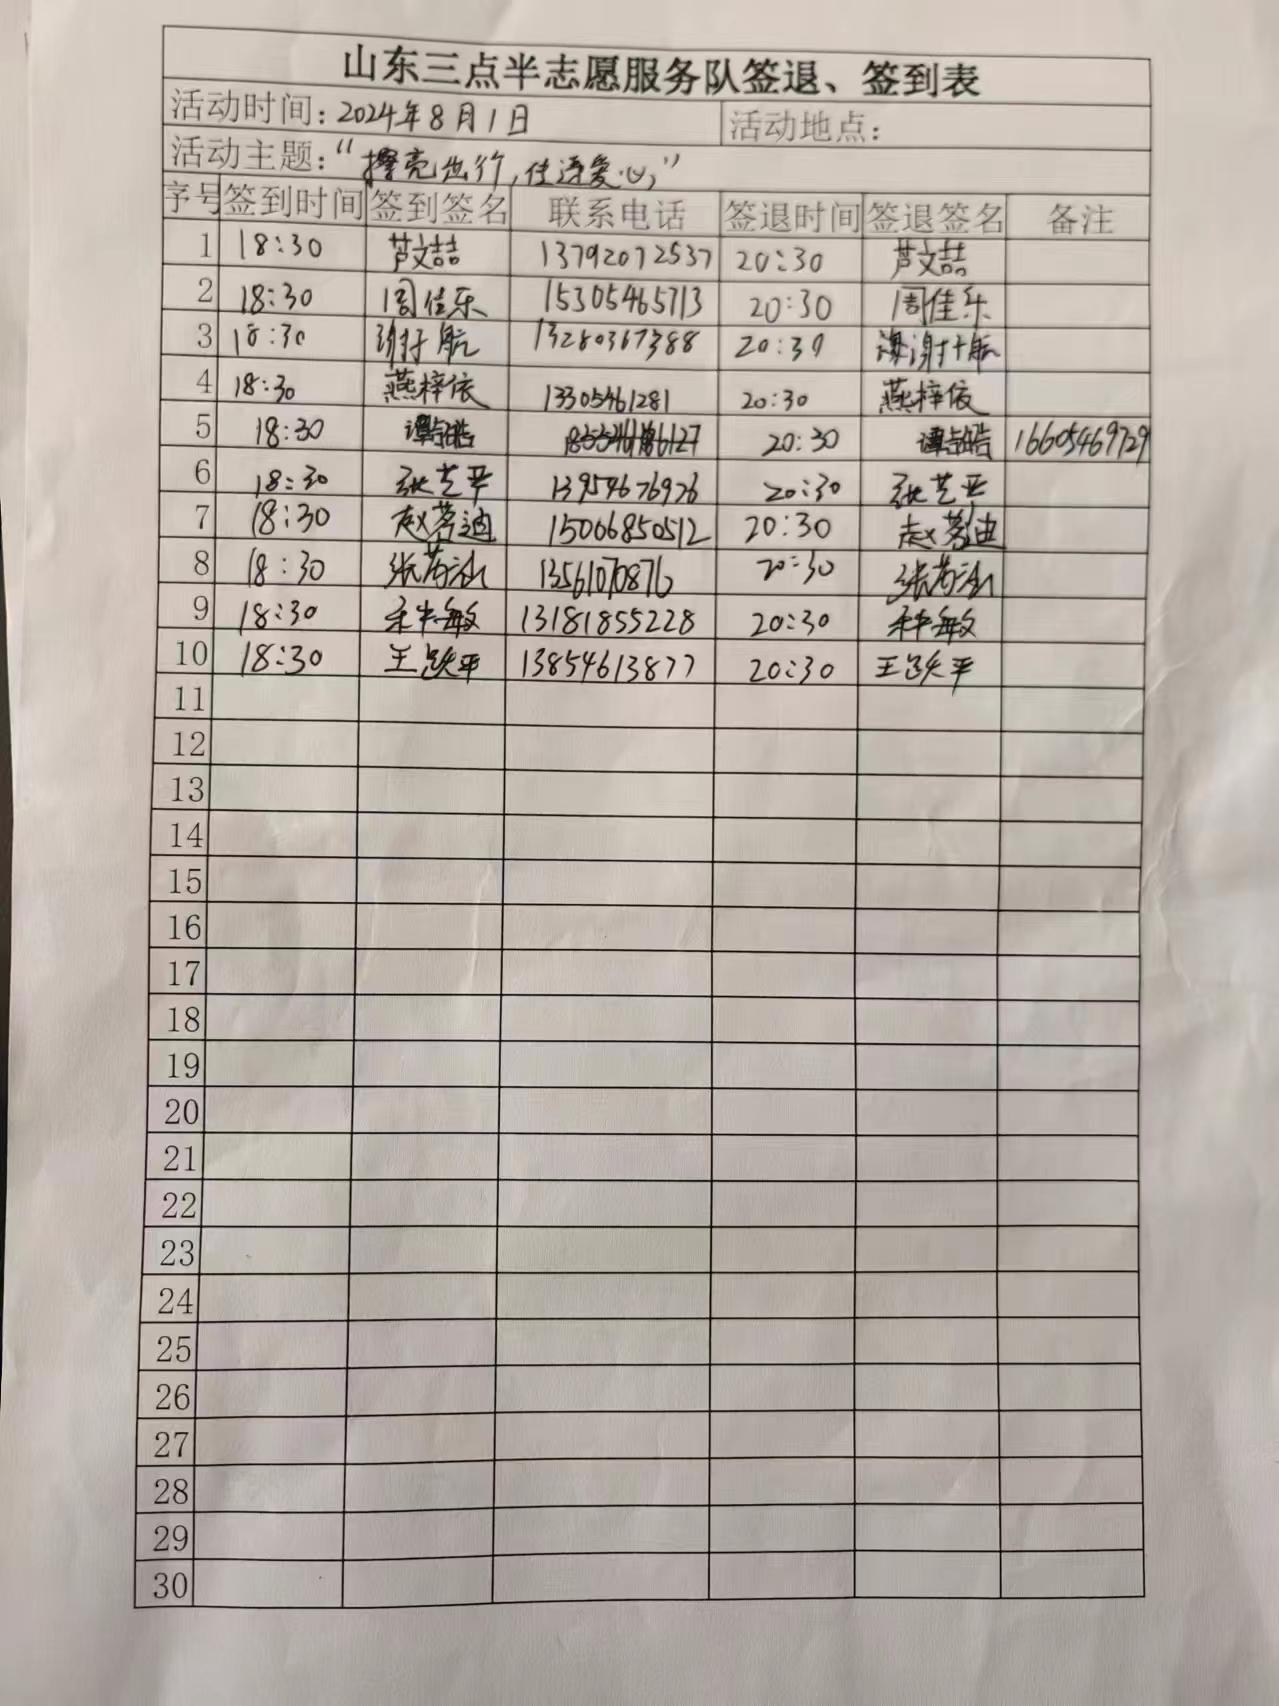 山东三点半志愿服务队签退、签到表
活动时间：2024年8月1日 活动地点：
活动主题：“擦亮出行，传递爱心”
序号 签到时间 签到签名 联系电话 签退时间 签退签名 备注
1 18:30 芦文喆 13792072537 20:30 芦文喆
2 18:30 周佳乐 15305465713 20:30 周佳乐
3 18:30 航 13280367388 20:30 谢 航
4 18:30 燕梓依 13305461281 20:30 燕梓依
5 18:30 谭 皓 20:30 谭 皓 16605469729
6 18:30 张芝平 13954676976 20:30 张芝平
7 18:30 赵茗迪 15066850512 20:30 赵茗迪
8 18:30 张 13561070876 20:30 张
9 18:30 敏 13181855228 20:30 敏
10 18:30 王跃平 13854613877 20:30 王跃平
11
12
13
14
15
16
17
18
19
20
21
22
23
24
25
26
27
28
29
30